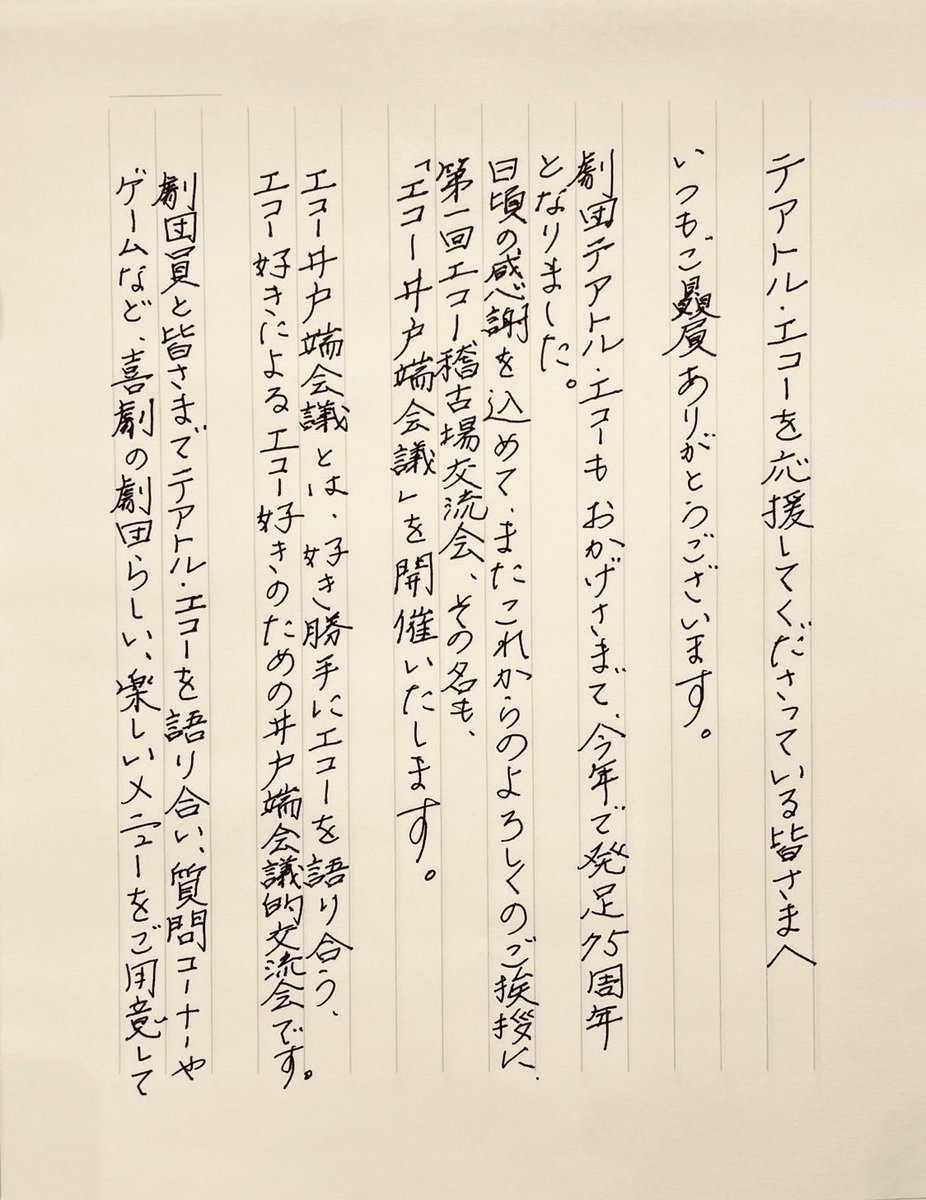 テアトル・エコーを応援してくださっている皆さまへ
いつもご贔屓ありがとうございます。
劇団テアトル・エコーもおかげさまで、今年で発足75周年
となりました。
日頃の感謝を込めて、またこれからのよろしくのご挨拶に、
第一回エコー稽古場交流会、その名も、
「エコー井戸端会議」を開催いたします。
エコー井戸端会議とは、好き勝手にエコーを語り合う、
エコー好きによるエコー好きのための井戸端会議的交流会です。
劇団員と皆さまでテアトル・エコーを語り合い、質問コーナーや
ゲームなど、喜劇の劇団らしい、楽しいメニューをご用意して